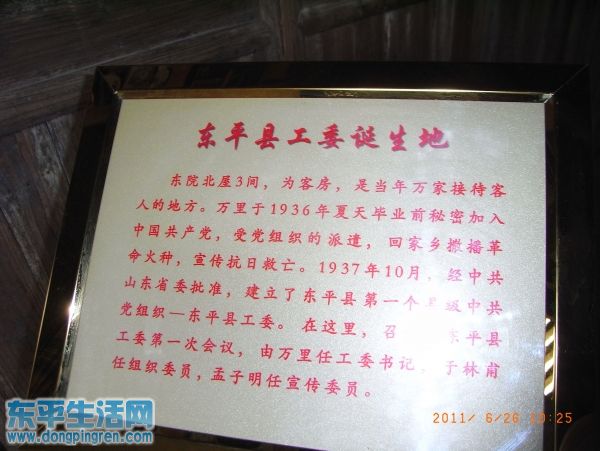 东平县工委诞生地
东院北屋3间，为客房，是当年万家接待客
人的地方。万里于1936年夏天毕业前秘密加入
中国共产党，受党组织的派遣，回家乡撒播革
命火种，宣传抗日救亡。1937年10月，经中共
山东省委批准，建立了东平县第一个县级中共
党组织—东平县工委。在这里，召 东平县
工委第一次会议，由万里任工委书记，于林甫
任组织委员，孟子明任宣传委员。
东平生活网
www.dongpingren.com
2011/ 6/26 10:25